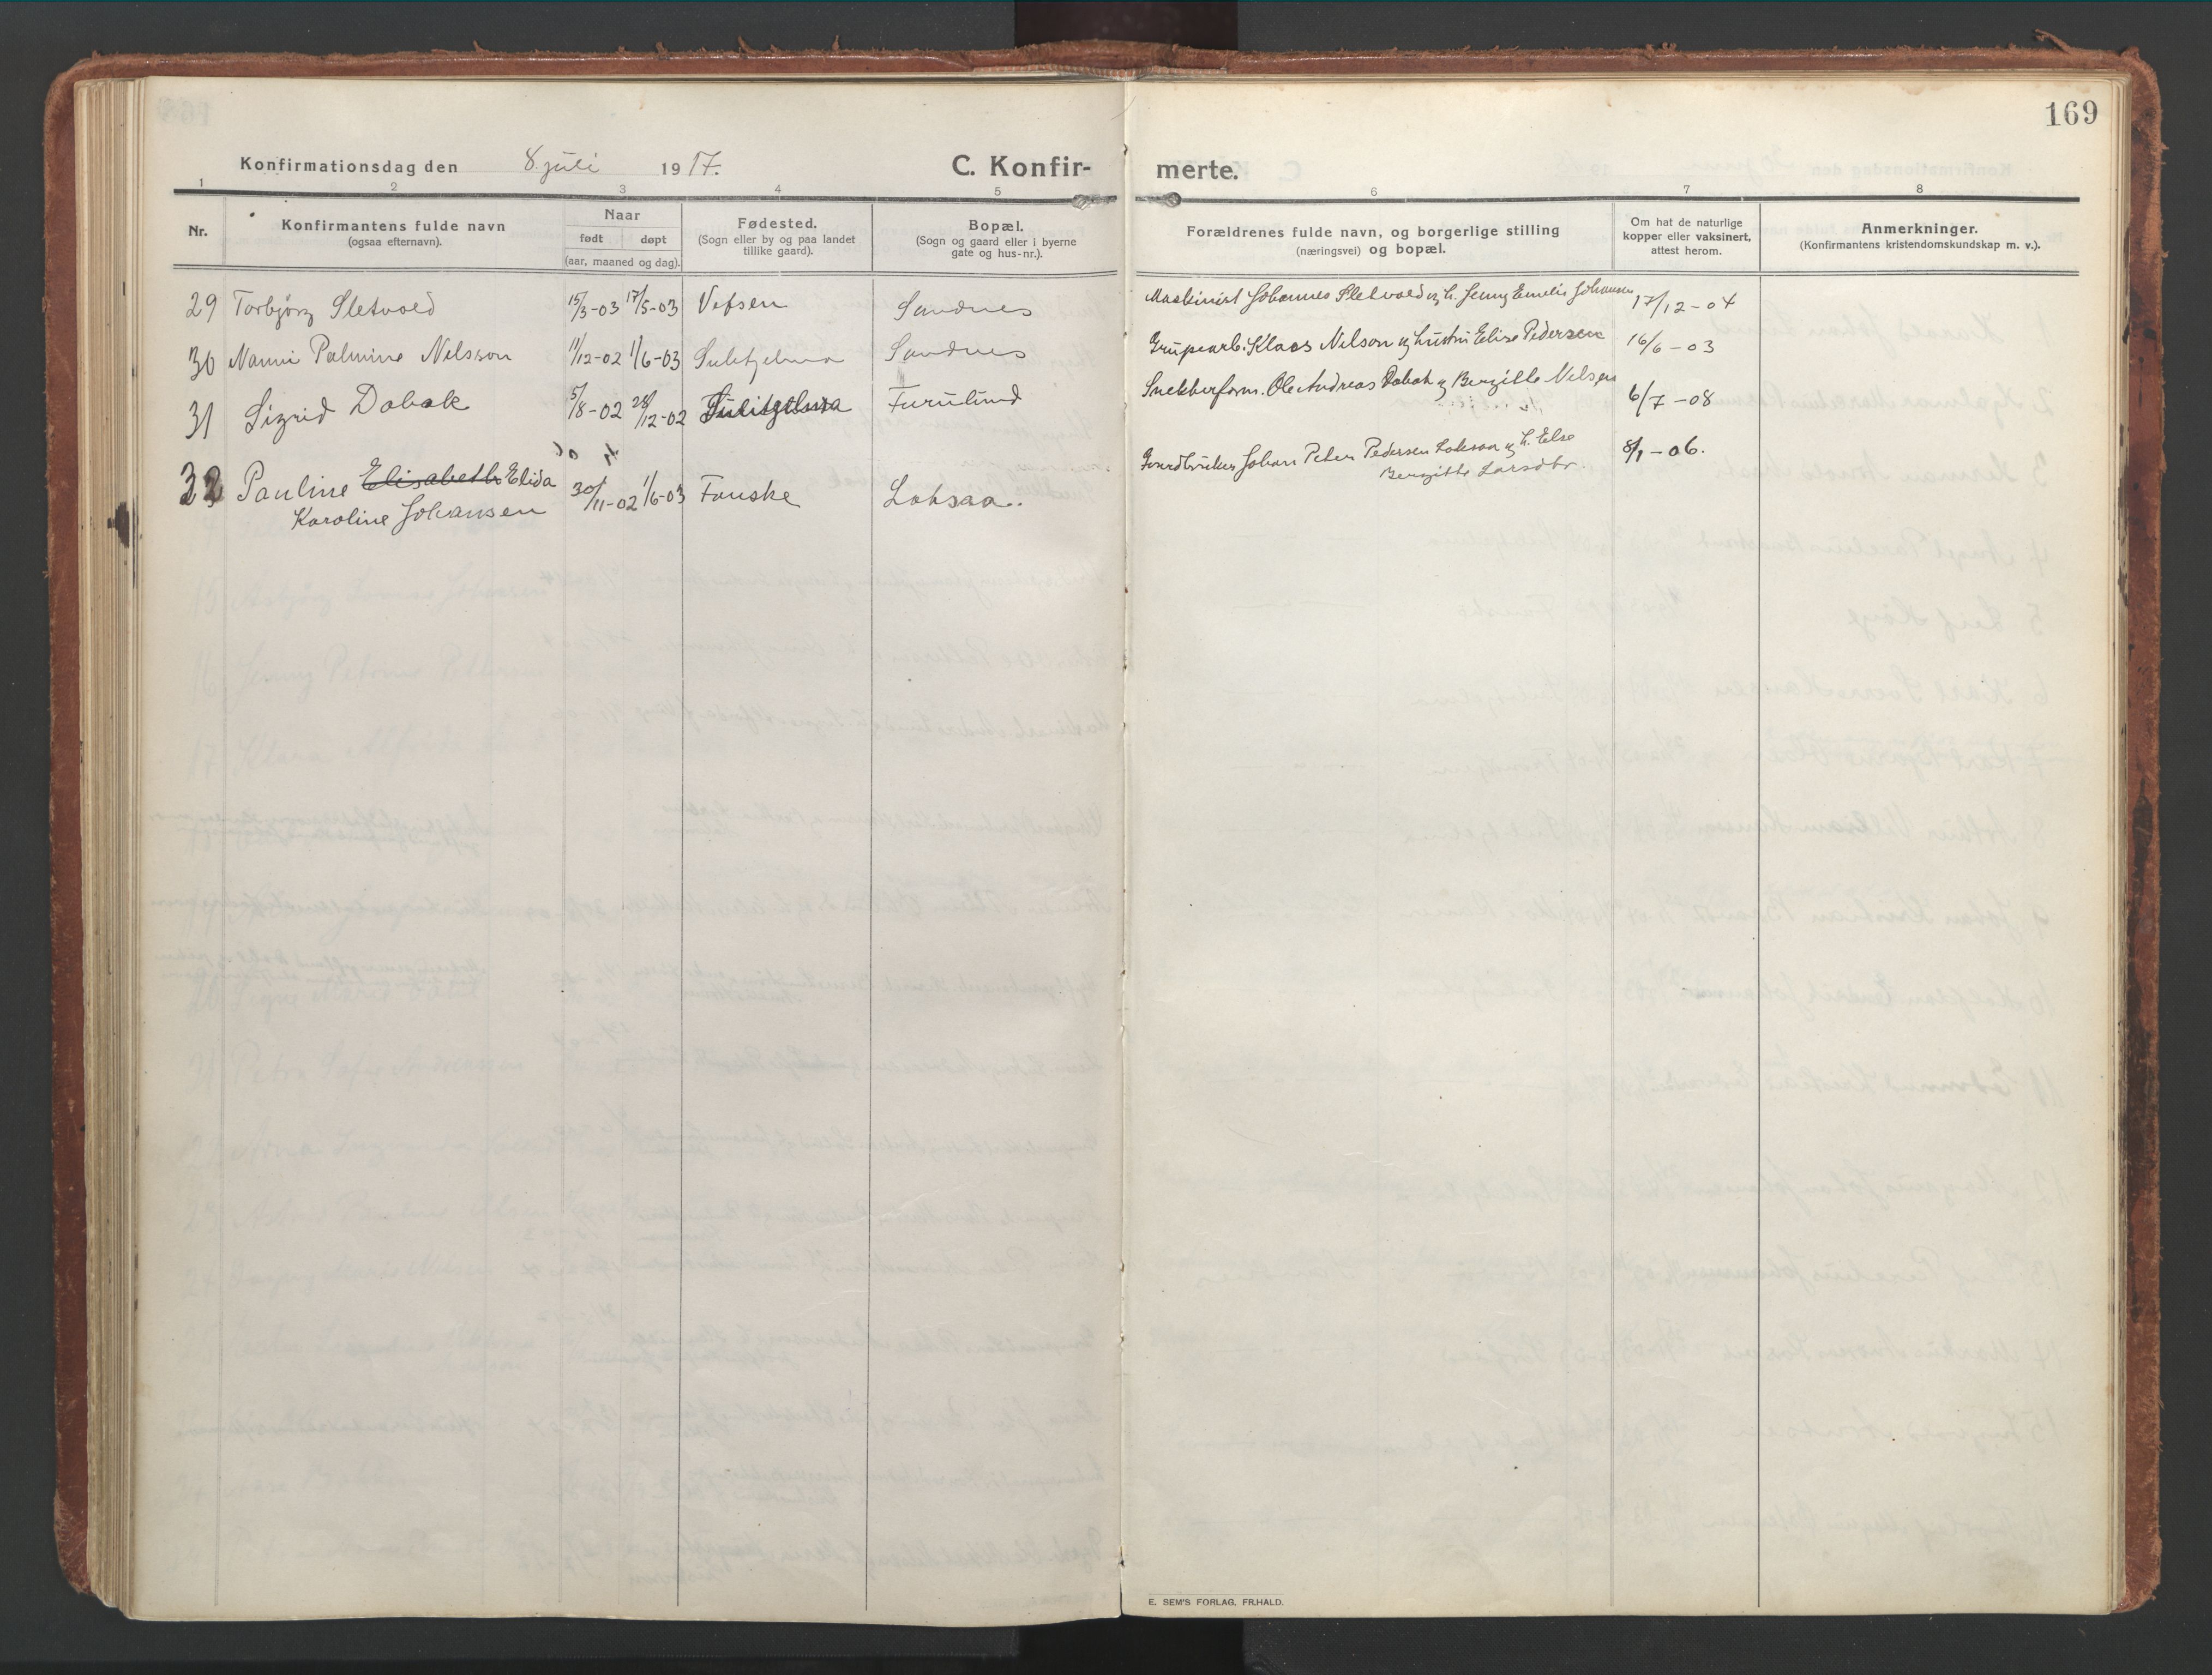 169
Konfirmationsdag den 8. juli 1917.
C. Konfir-
merte.
1 2 3 4 5 6 7 8
Nr.
Konfirmantens fulde navn
(ogsaa efternavn).
Naar
født døpt
(aar, maaned og dag).
Fødested.
(Sogn eller by og paa landet
tillike gaard).
Bopæl.
(Sogn og gaard eller i byerne
gate og hus-nr.).
Forældrenes fulde navn, og borgerlige stilling
(næringsvei) og bopæl.
Om hat de naturlige
kopper eller vaksinert,
attest herom.
Anmerkninger.
(Konfirmantens kristendomskundskap m. v.).
29 Torbjörg Sletvold 15/3-03 17/5-03 Vefsen Sandnes Maskinist Johannes Sletvold og h. Jenny Emelie Johansen 17/12-04
30 Nanni Palmine Nilsson 11/12-02 1/6-03 Sulitjelma Sandnes Grupearb. Klaos Nilson og hustru Elise Pedersen 16/6-03
31 Sigrid Dabak 5/8-02 28/12-02 Sulitjelma Furulund Snekkerform. Ole Andreas Dabak og Bergitte Nilsen 6/7-08
32 Pauline Elisabeth Elida 30/11-02 1/6-03 Fauske Laksaa. Gaardbruker Johan Peter Pedersen Laksaa og h. Else 8/1-06.
Karoline Johansen
Bergitte Larsdtr.
E. SEM'S FORLAG, FR.HALD.